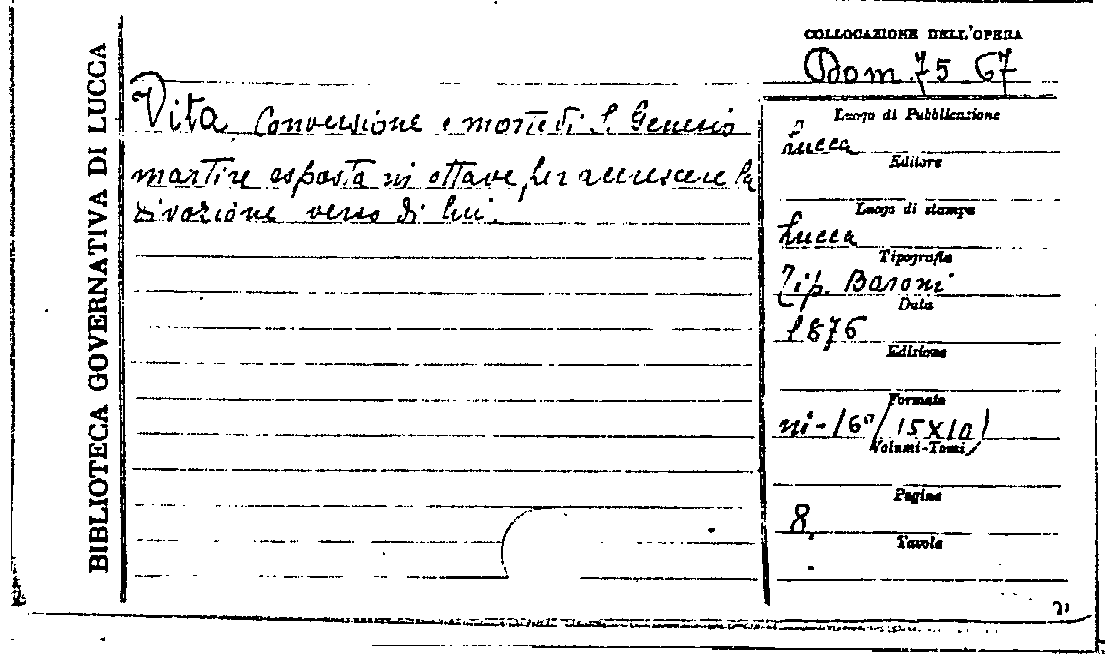 BIBLIOTECA GOVERNATIVA DI LUCCA
COLLOCAZIONE DELL'OPERA
Dom. 75 67
Vita, Conversione e morte di S. Genesio
martire esposta in ottave, per accrescere la
divozione verso di lui.
Luogo di Pubblicazione
Lucca
Editore
Luogo di stampa
Lucca
Tipografia
Tip. Baroni
Data
1876
Edizione
Formato
in-16º (15X10)
Volumi-Tomi
Pagine
8.
Tavole